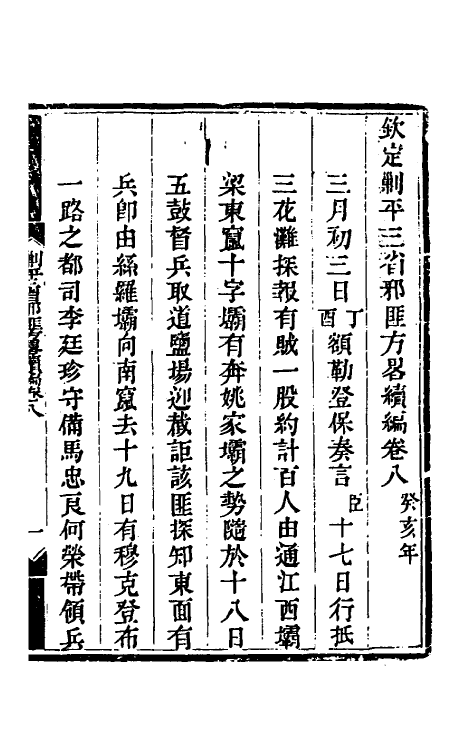 欽定剿平三省邪匪方畧續編卷八 癸亥年
三月初三日丁酉額勒登保奏言臣十七日行抵
三花灘探報有賊一股約計百人由通江西壩
梁東竄十字壩有奔姚家壩之勢隨於十八日
五鼓督兵取道鹽場迎截詎該匪探知東面有
兵卽由絲羅壩向南竄去十九日有穆克登布
一路之都司李廷珍守備馬忠良何榮帶領兵
剿平三省邪匪方畧續編卷八
一